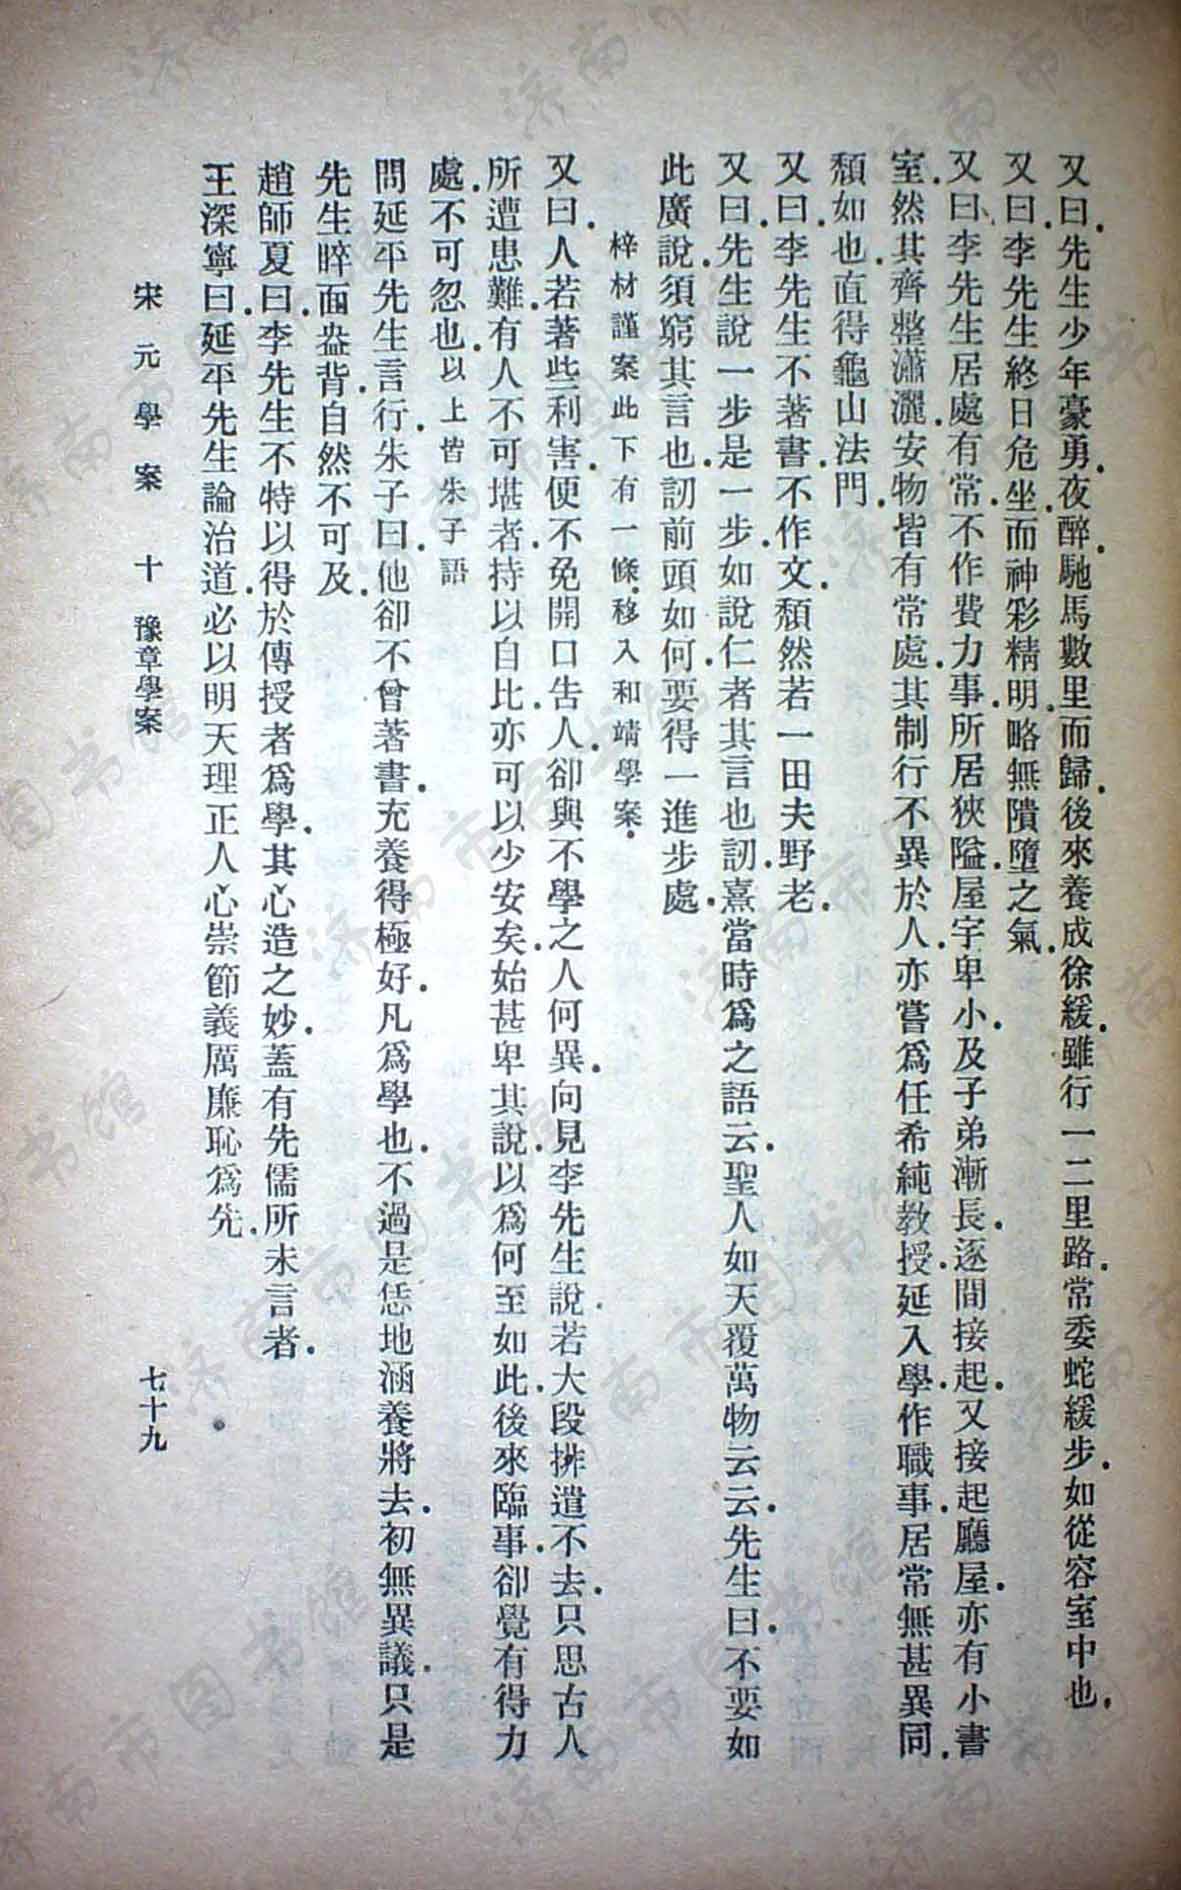 又曰.先生少年豪勇.夜醉.馳馬數里而歸.後來養成徐緩.雖行一二里路.常委蛇緩步.如從容室中也.
又曰.李先生終日危坐.而神彩精明.略無隤墮之氣.
又曰.李先生居處有常.不作費力事.所居狹隘.屋宇卑小.及子弟漸長.逐間接起.又接起廳屋.亦有小書
室.然其齊整瀟灑.安物皆有常處.其制行不異於人.亦嘗爲任希純教授.延入學.作職事.居常無甚異同.
頹如也.直得龜山法門.
又曰.李先生不著書.不作文.頹然若一田夫野老.
又曰.先生說一步是一步.如說仁者其言也訒.熹當時爲之語云.聖人如天覆萬物云云.先生曰.不要如
此廣說.須窮其言也.訒前頭如何.要得一進步處.
梓材謹案此下有一條.移入和靖學案.
又曰.人若著些利害.便不免開口告人.卻與不學之人何異.向見李先生說.若大段排遣不去.只思古人
所遭患難.有人不可堪者.持以自比.亦可以少安矣.始甚卑其說.以爲何至如此.後來臨事.卻覺有得力
處.不可忽也.以上皆朱子語
問延平先生言行.朱子曰.他卻不曾著書.充養得極好.凡爲學也.不過是恁地涵養將去.初無異議.只是
先生睟面盎背.自然不可及.
趙師夏曰.李先生不特以得於傳授者爲學.其心造之妙.蓋有先儒所未言者.
王深寧曰.延平先生論治道.必以明天理正人心崇節義厲廉恥爲先.
宋元學案 十 豫章學案
七十九
济南市图书馆